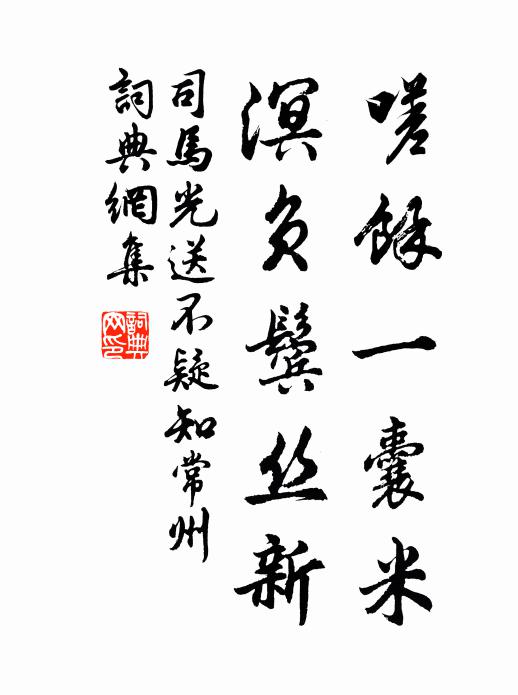 嗟餘一囊米
溟负鬓丝新
司馬光送不疑知常州
詞典網集
詞典網印